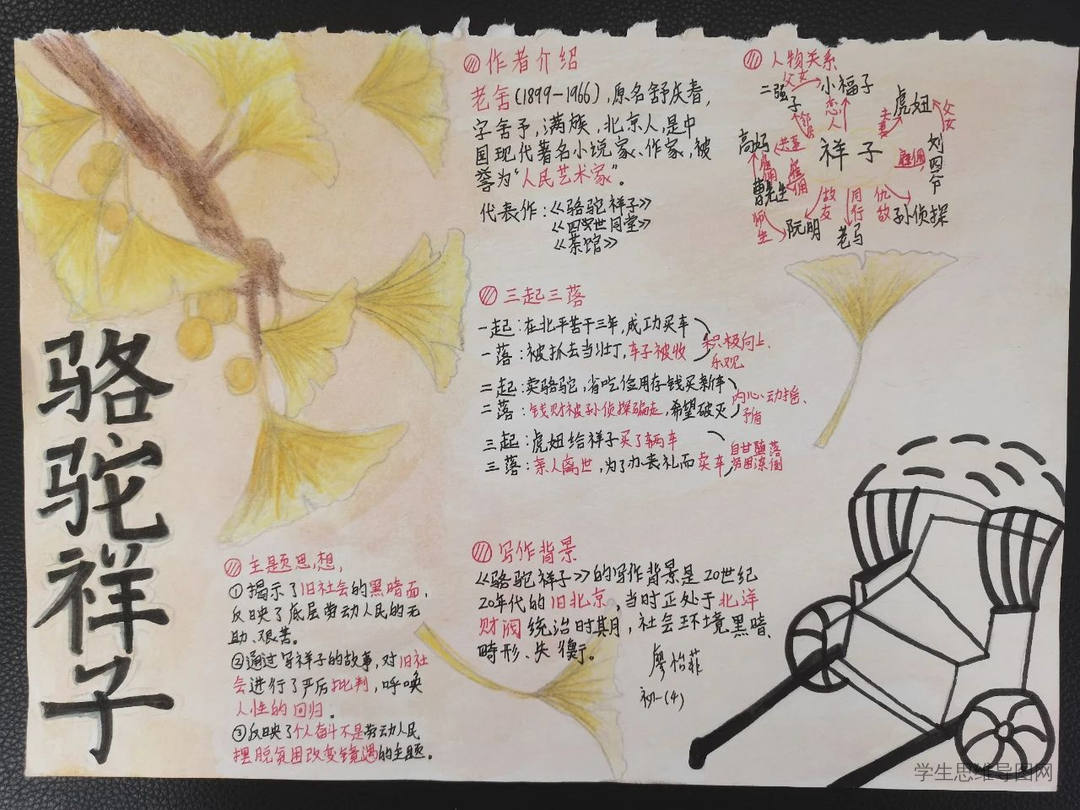 骆驼祥子
作者介绍
老舍(1899-1966),原名舒庆春,
字舍予,满族,北京人,是中
国现代著名小说家、作家,被
誉为“人民艺术家”。
代表作:《骆驼祥子》
《四世同堂》
《茶馆》
人物关系
二强子
父女
小福子
恋人
邻居
虎妞
夫妻
父女
高妈
共事
祥子
雇佣
刘四爷
雇佣
曹先生
雇佣
师生
阮明
故友
同行
老马
仇敌
孙侦探
三起三落
一起:在北平苦干三年,成功买车
一落:被抓去当壮丁,车子被收
积极向上、
乐观
二起:卖骆驼,省吃俭用存钱买新车
二落:钱财被孙侦探骗走,希望破灭
内心动摇、
矛盾
三起:虎妞给祥子买了辆车
三落:亲人离世,为了办丧礼而卖车
自甘堕落
穷困潦倒
主题思想
①揭示了旧社会的黑暗面,
反映了底层劳动人民的无
助、艰苦。
②通过写祥子的故事,对旧社
会进行了严厉批判,呼唤
人性的回归。
③反映了个人奋斗不是劳动人民
摆脱贫困改变境遇的主题。
写作背景
《骆驼祥子》的写作背景是20世纪
20年代的旧北京。当时正处于北洋
财阀统治时期,社会环境黑暗、
畸形、失衡。
廖怡菲
初一(4)
学生思维导图网